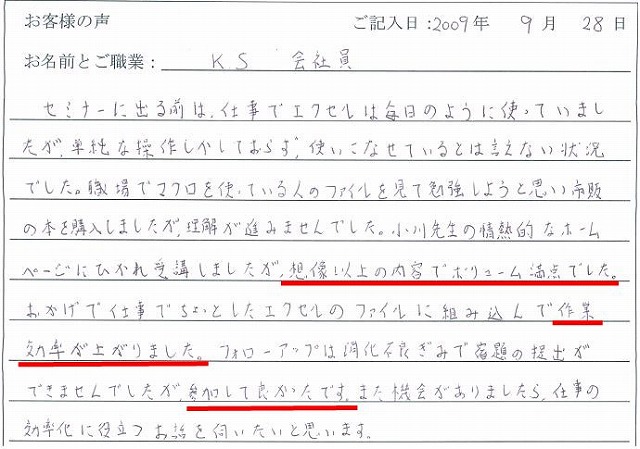 お客様の声 ご記入日:2009年 9月 28日
お名前とご職業: KS 会社員
セミナーに出る前は、仕事でエクセルは毎日のように使っていまし
たが、単純な操作しかしておらず、使いこなせているとは言えない状況
でした。職場でマクロを使っている人のファイルを見て勉強しようと思い市販
の本を購入しましたが、理解が進みませんでした。小川先生の情熱的なホーム
ページにひかれ受講しましたが、想像以上の内容でボリューム満点でした。
おかげで仕事でちょっとしたエクセルのファイルに組み込んで作業
効率が上がりました。フォローアップは消化不良ぎみで宿題の提出が
できませんでしたが、参加して良かったです。また機会がありましたら、仕事の
効率化に役立つお話を伺いたいと思います。